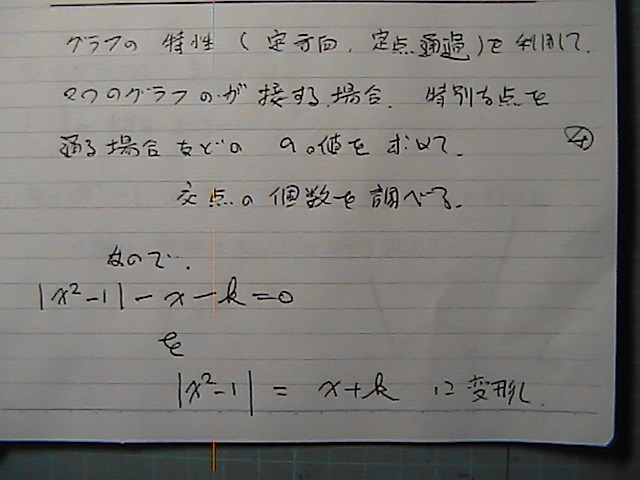 グラフの 特性 (定方向, 定点通過)を 利用して,
2つのグラフのが 接する場合, 特別な点を
通る場合などの aの値を 求めて, ④
交点の 個数を 調べる.
なので,
|x²-1|-x-k=0
を
|x²-1| = x+k に変形し.